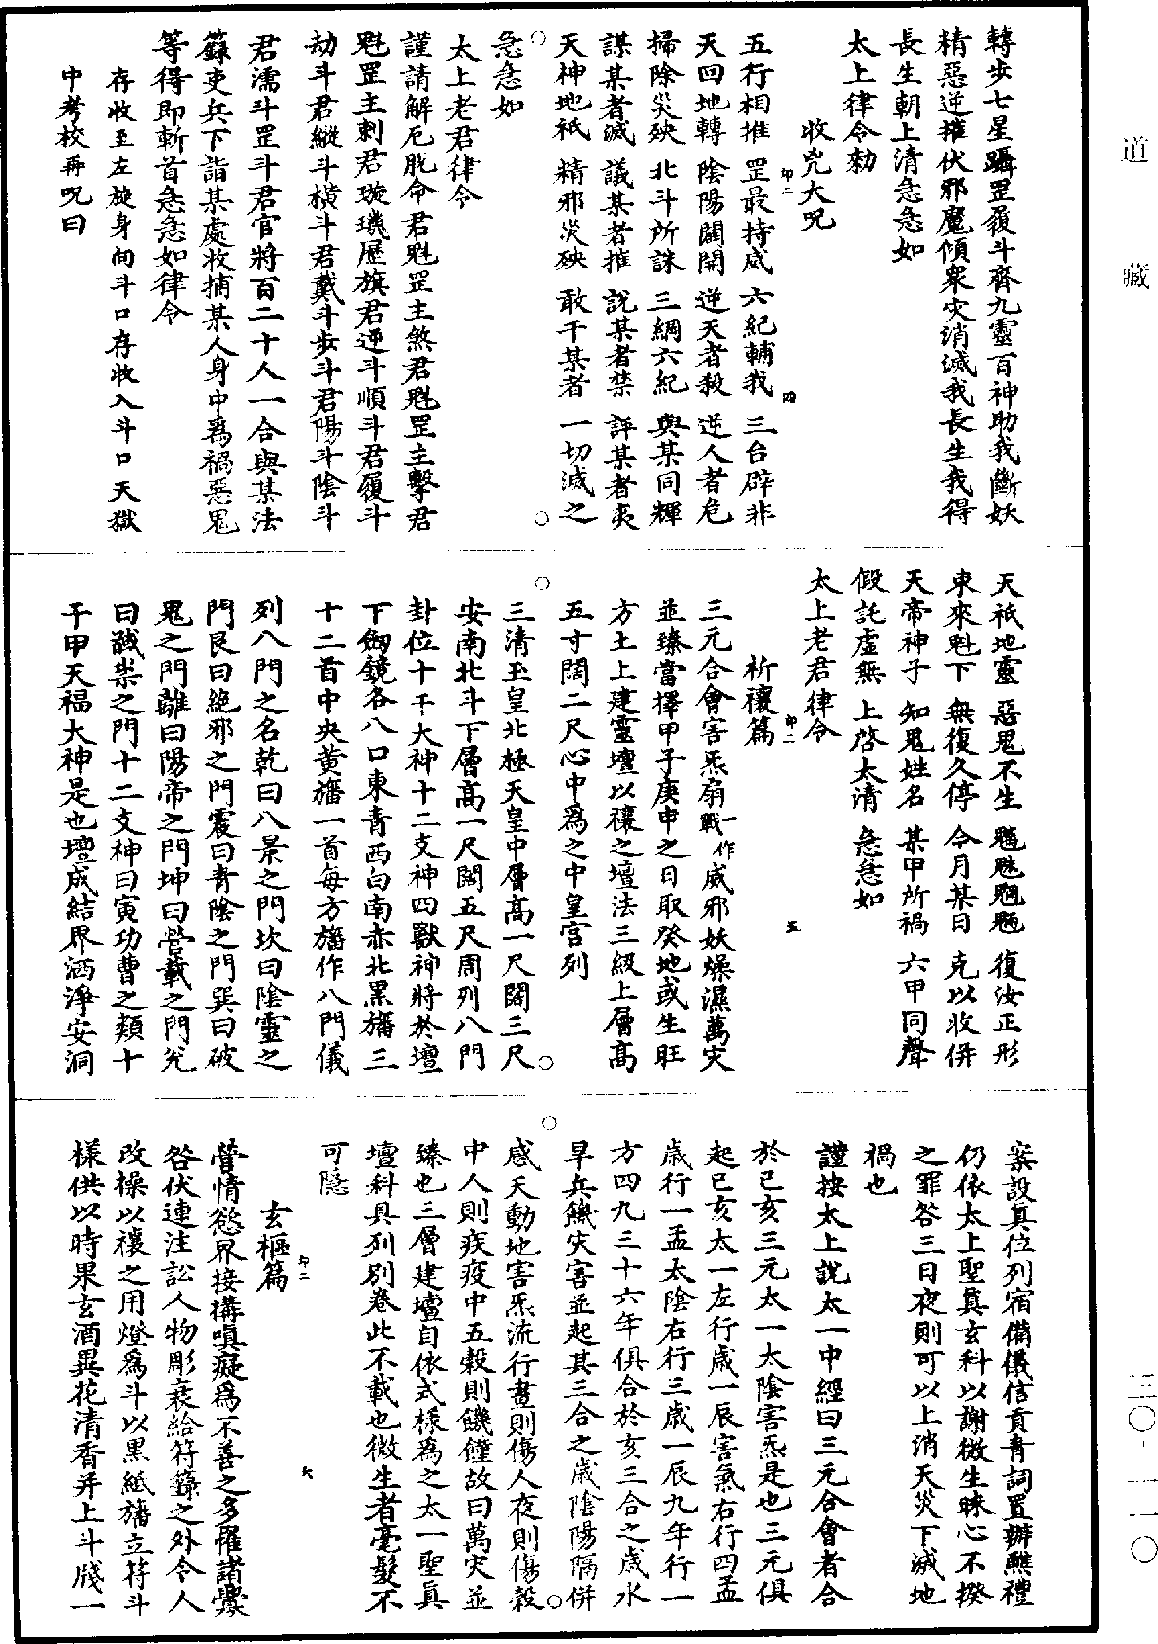 轉步七星躡罡履斗齊九靈百神助我斷妖
精惡逆摧伏邪魔傾衆灾消滅我長生我得
長生朝上清急急如
太上律令勑
收兇大呪
五行相推　罡最持威　六紀輔我　三台辟非
天回地轉　陰陽闢開　逆天者殺　逆人者危
掃除災殃　北斗所誅　三綱六紀　與某同輝
謀某者滅　議某者摧　說某者禁　評某者夷
天神地祇　精邪災殃　敢干某者　一切滅之
急急如
太上老君律令
謹請解厄脫命君魁罡主煞君魁罡主擊君
魁罡主刺君璇璣歷旗君逆斗順斗君履斗
劫斗君縱斗橫斗君戴斗步斗君陽斗陰斗
君濡斗罡斗君官將百二十人一合與某法
籙吏兵下詣某處收捕某人身中爲禍惡鬼
等得即斬首急急如律令
存收至左旋身向斗口存收入斗口天獄
中考校再呪曰
天祇地靈　惡鬼不生　復汝正形
東來魁下　無復久停　今月某日　克以收併
天帝神子　知鬼姓名　某甲所禍　六甲同聲
假託虛無　上啓太清　急急如
太上老君律令
祈禳篇
三元合會害炁扇一作戰威邪妖燥濕萬灾
並臻當擇甲子庚申之日取癸地或生旺
方土上建靈壇以禳之壇法三級上層高
五寸闊二尺心中爲之中皇宮列
三清玉皇北極天皇中層高一尺闊三尺
安南北斗下層高一尺闊五尺周列八門
卦位十干大神十二支神四獸神將於壇
下劒鏡各八口東青西白南赤北黑旛三
十二首中央黄旛一首每方旛作八門儀
列八門之名乾曰八景之門坎曰陰靈之
門艮曰絶邪之門震曰青陰之門巽曰破
鬼之門離曰陽帝之門坤曰營載之門兌
曰馘祟之門十二支神曰寅功曹之類十
干甲天福大神是也壇成結界洒淨安洞
案設真位列宿備儀信貢青詞置辦醮禮
仍依太上聖真玄科以謝微生昧心不揆
之罪咎三日夜則可以上消天災下滅地
禍也
謹按太上說太一中經曰三元合會者合
於己亥三元太一太陰害炁是也三元俱
起己亥太一左行歲一辰害氣右行四孟
歲行一孟太陰右行三歲一辰九年行一
方四九三十六年俱合於亥三合之歲水
旱兵饑灾害並起其三合之歲陰陽隔併
感天動地害炁流行晝則傷人夜則傷穀
中人則疾疫中五穀則饑饉故曰萬灾並
臻也三層建壇自依式樣爲之太一聖真
壇科具列別卷此不載也微生者毫髮不
可隱
玄樞篇
營情慾界接搆嗔癡爲不善之多罹諸釁
咎伏連注訟人物彫衰給符籙之外令人
改操以禳之用燈爲斗以黑紙旛立符斗
樣供以時果玄酒異花清香并上斗牋一
道藏
三〇-一一〇